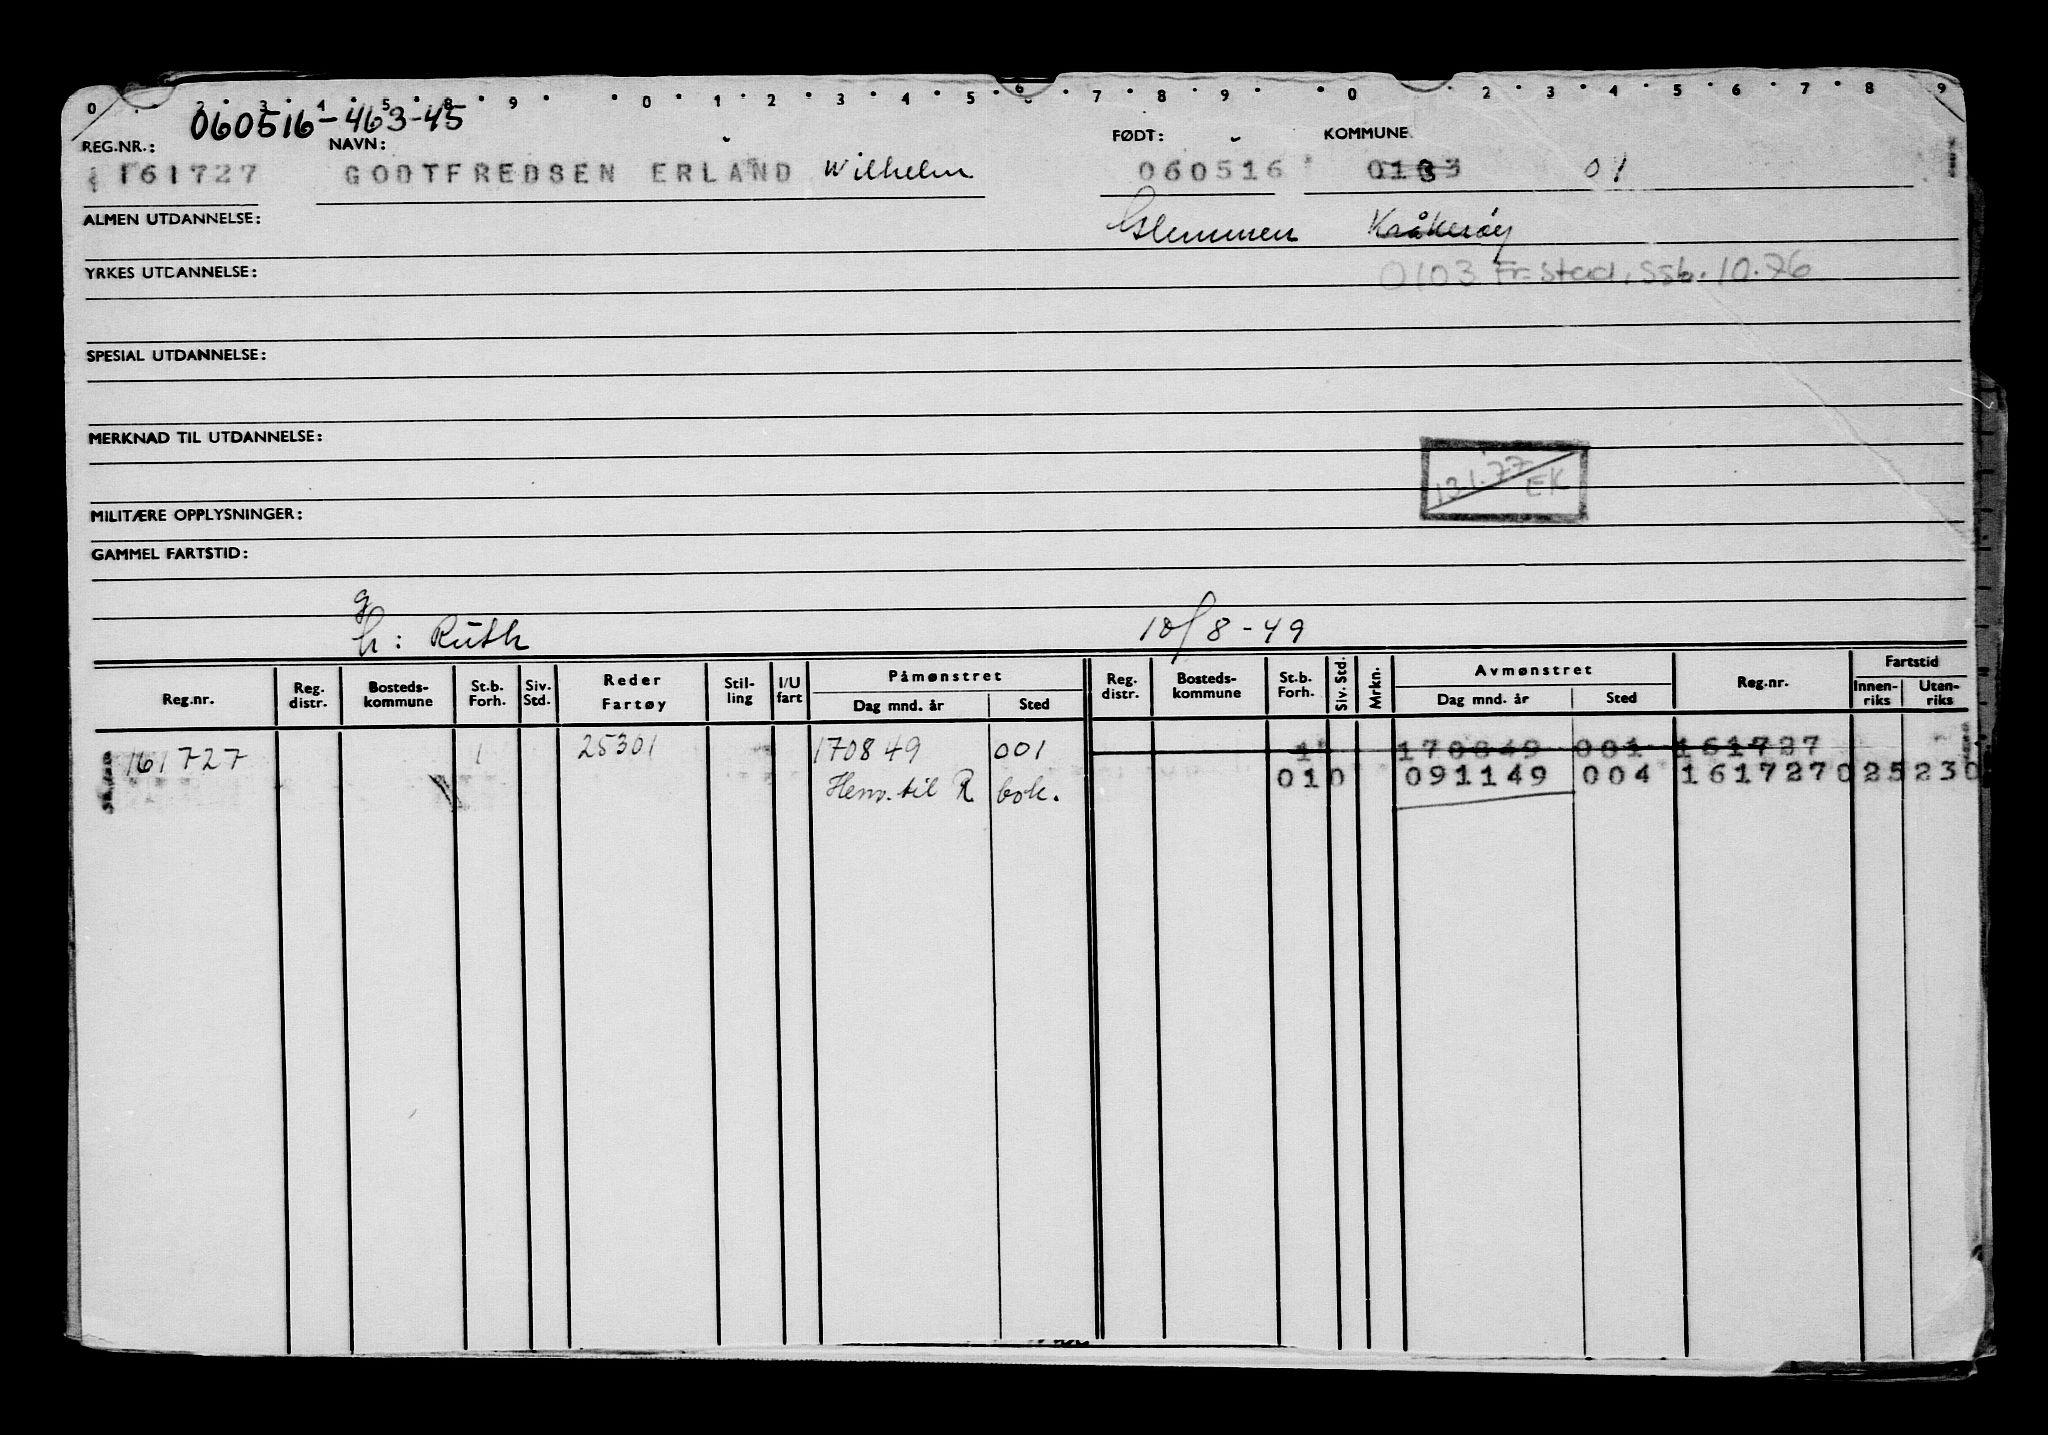 0 2 3 4 5 8 9 0 1 2 3 4 5 6 7 8 9 0 2 3 4 5 6 7 8 9
060516-463-45
REG.NR.: NAVN: FØDT: KOMMUNE
161727 GODTFREDSEN ERLAND Wilhelm 060516 0103 01
ALMEN UTDANNELSE: Glemmen Kråkerøy
YRKES UTDANNELSE: 0103 Fr.stad, ssb. 10.76
SPESIAL UTDANNELSE:
MERKNAD TIL UTDANNELSE:
13.1.77 EK
MILITÆRE OPPLYSNINGER:
GAMMEL FARTSTID:
g
h: Ruth 10/8-49
Reg.nr. Reg. distr. Bosteds-kommune St.b. Forh. Siv. Std. Reder Fartøy Stil-ling I/U fart Påmønstret Dag mnd. år Sted Reg. distr. Bosteds-kommune St.b. Forh. Siv. Std. Mrkn. Avmønstret Dag mnd. år Sted Reg.nr. Fartstid Innen-riks Uten-riks
161727 1 25301 170849 001 1 170849 001 161727
Henv. til R bok. 010 091149 004 161727025230